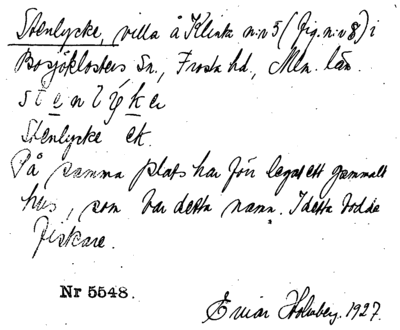 Stenlycke, villa å Klinta n:r 5 (fig. n:r 8) i
Bosjöklosters Sn, Frosta hd, Mlm. län.
stenlýke
Stenlycke ek.
På samma plats har förr legat ett gammalt
hus, som bar detta namn. I detta bodde
fiskare.
Nr 5548.
Einar Holmberg. 1927.